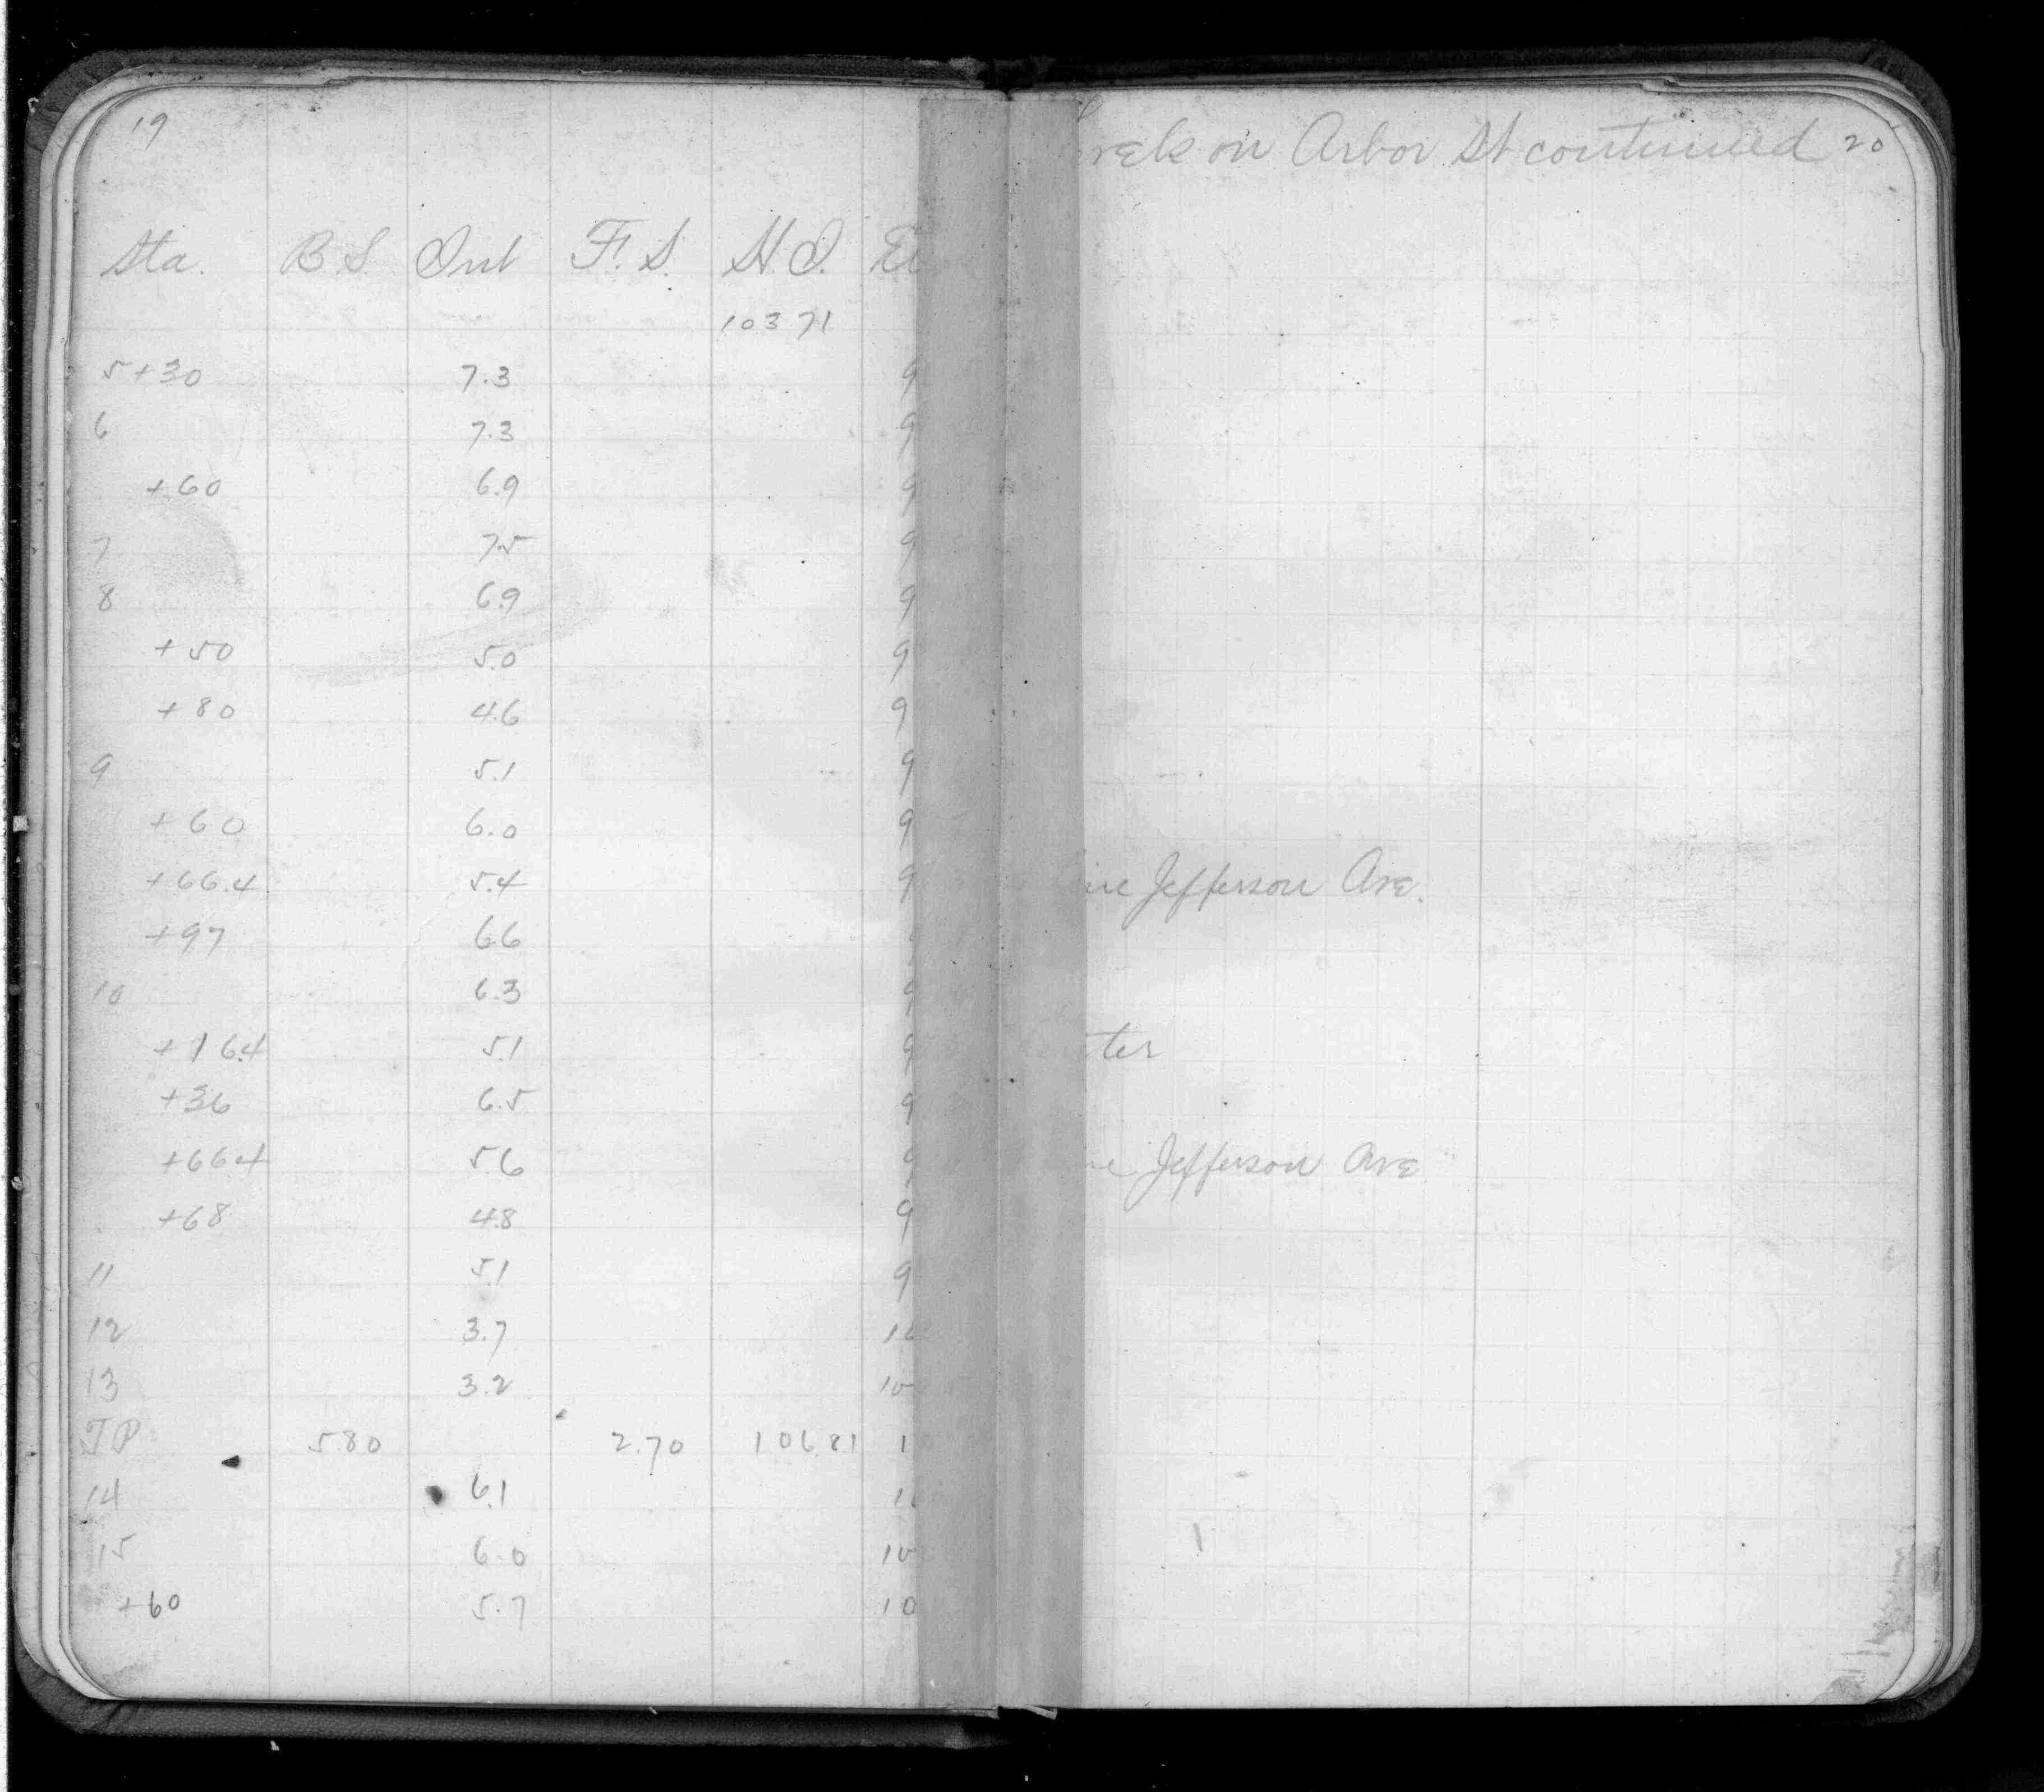 19
Sta. B.S. Int F.S. H.I. El
103 71
5+30 7.3 9
6 7.3 9
+60 6.9 9
7 7.5 9
8 6.9 9
+50 5.0 9
+80 4.6 9
9 5.1 9
+60 6.0 9
+66.4 5.4 9
+97 6.6
10 6.3 9
+16.4 5.1 9
+36 6.5 9
+66.4 5.6 9
+68 4.8 9
11 5.1 9
12 3.7 10
13 3.2 10
T P 5.80 2.70 106.81 10
14 6.1 10
15 6.0 10
+60 5.7 10
on Arbor St continued 20
Jefferson Ave.
ter
Jefferson Ave